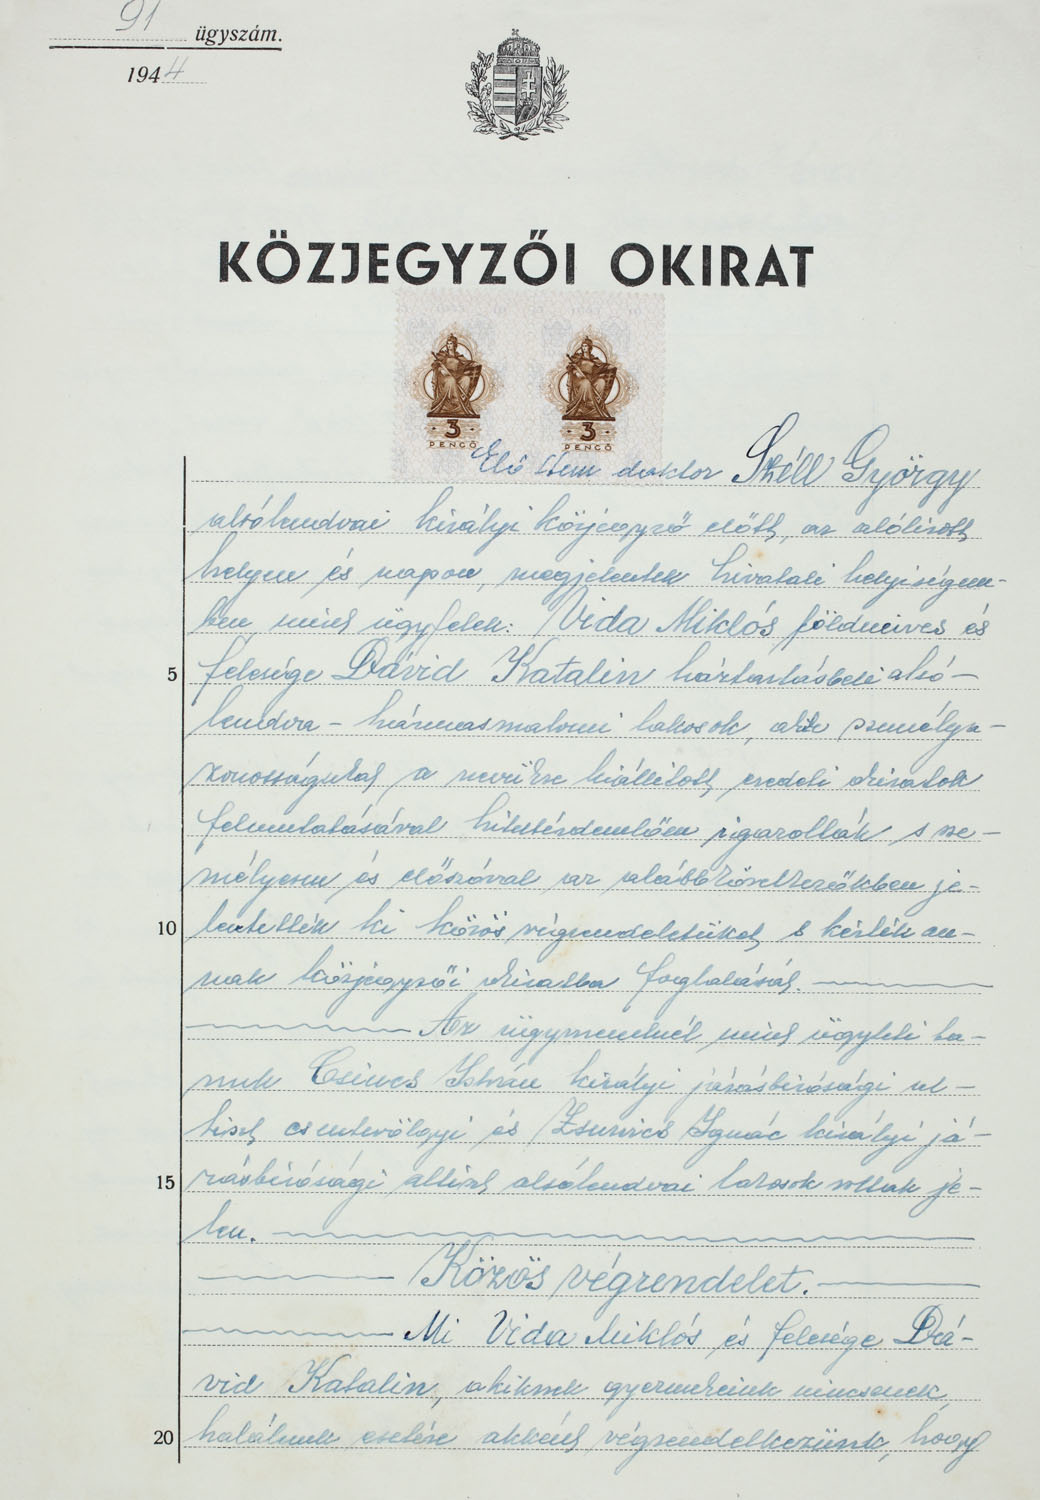 91 ügyszám.
1944
KÖZJEGYZŐI OKIRAT
3 3
PENGŐ PENGŐ
Előttem doktor Széll György
alsólendvai királyi közjegyző előtt, az alólirott
helyen és napon, megjelentek hivatali helyiségem-
ben mint ügyfelek: Vida Miklós földmives és
5 felesége Dávid Katalin háztartásbeli alsó-
lendva - hármasmalmi lakosok, akik személya-
zonosságukat a nevükre kiállitott eredeti okiratok
felmutatásával hitelérdemlően igazolták s sze-
mélyesen és élőszóval az alább következőkben je-
10 lentették ki közös végrendeletüket s kérték an-
nak közjegyzői okiratba foglalását.
Az ügymenetnél mint ügyleti ta-
nuk Csincs István királyi járásbirósági al-
tiszt csentevölgyi és Zsurics Ignác királyi já-
15 rásbirósági altiszt alsólendvai lakosok voltak je-
len.
Közös végrendelet.
Mi Vida Miklós és felesége Dá-
vid Katalin, akiknek gyermekeink nincsenek,
20 halálunk esetére akként végrendelkezünk, hogy